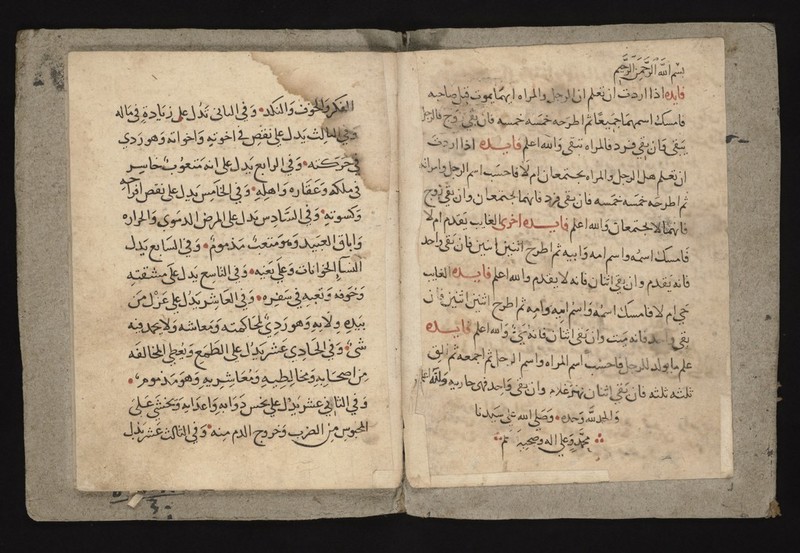 بسم الله الرحمن الرحيم
فايده اذا اردت ان تعلم ان الرجل والمراه ايهما يموت قبل صاحبه
فامسك اسمهما جميعا ثم اطرحه خمسه خمسه فان بقي زوج فالرجل
يبقي وان بقي فرد فالمراه تبقي والله اعلم فايده اذا اردت
ان تعلم هل الرجل والمراه يجتمعان ام لا فاحسب اسم الرجل وامراته
ثم اطرحه خمسه خمسه فان بقي فرد فانهما يجتمعان وان بقي زوج
فانهما لا يجتمعان والله اعلم فايده اخرى الغايب يقدم ام لا
فامسك اسمه واسم امه وابيه ثم اطرح اثنين اثنين فان بقي واحد
فانه يقدم وان بقي اثنان فانه لا يقدم والله اعلم فايده الغايب
حي ام لا فامسك اسمه واسم ابيه وامه ثم اطرح اثنين اثنين فان
بقي واحد فانه ميت وان بقي اثنان فانه حي والله اعلم فايده
علم ما يولد للرجل فاحسب اسم المراه واسم الرجل ثم اجمعه ثم الق
ثلثه ثلثه فان بقي اثنان فهو غلام وان بقي واحد فهي جاريه والله اعلم
والحمد لله وحده وصلي الله علي سيدنا
محمد وعلي اله وصحبه تم
الفكر والخوف والنكد وفي الثاني تدل علي زيادة في ماله
وفي الثالث يدل علي نقص في اخوته واخواته وهو ردي
في حركته وفي الرابع يدل علي انه متعوب خاسر
في ملكه وعقاره واهله وفي الخامس يدل علي نقص افراحه
وكسوته وفي السادس يدل علي المرض الدموي والحراره
واباق العبيد وهو متعب مذموم وفي السابع يدل
النسا الخوانات وعلي تعبه وفي التاسع يدل علي مشقته
وخوفه وتعبه في سفره وفي العاشر يدل علي عزل من
بيده ولايه وهو ردي لمحاكمته ومعاشه ولا يحمد فيه
شي وفي الحادي عشر يدل علي الطمع ويعطي المخالفه
من اصحابه ومخالطيه ومعاشريه وهو مذموم
وفي الثاني عشر يدل علي نحس دوابه واعدايه ويخشى علي
المحبوس من الضرب وخروج الدم منه وفي الثالث عشر يدل